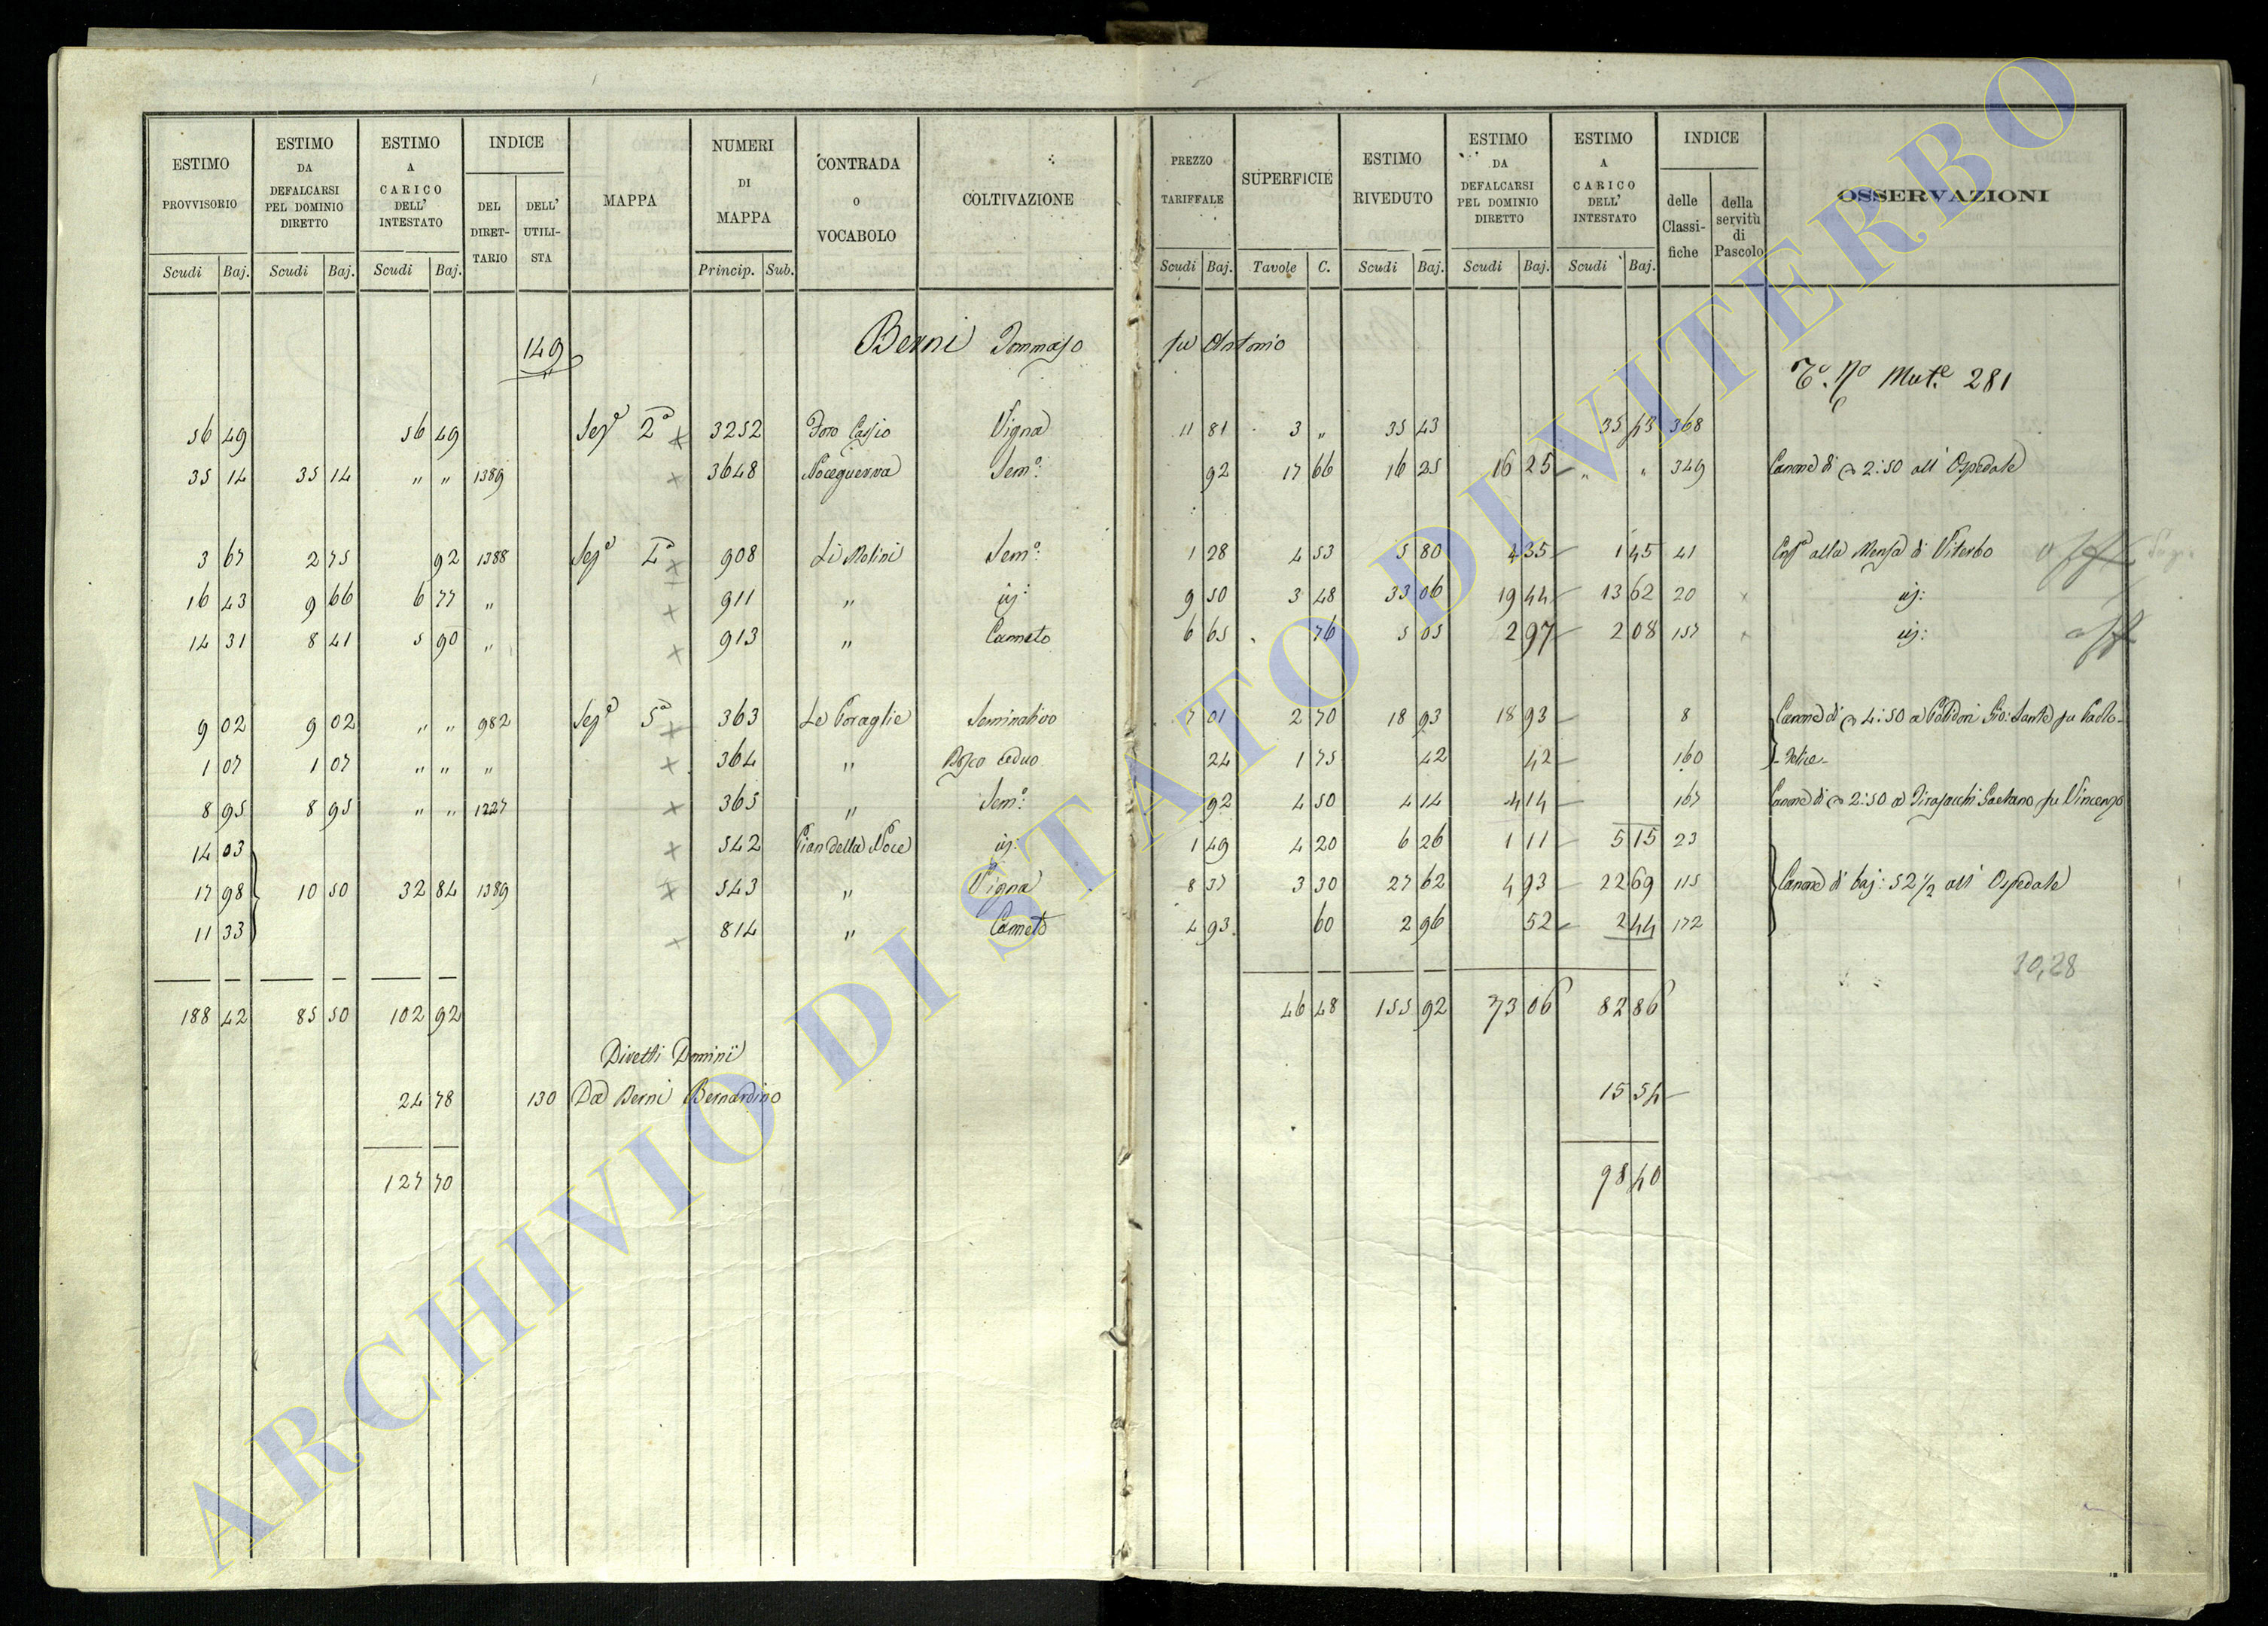 ESTIMO PROVVISORIO | ESTIMO DA DEFALCARSI PEL DOMINIO DIRETTO | ESTIMO A CARICO DELL' INTESTATO | INDICE DEL DIRETTARIO | DELL' UTILISTA | MAPPA | NUMERI DI MAPPA | CONTRADA O VOCABOLO | COLTIVAZIONE | PREZZO TARIFFALE | SUPERFICIE | ESTIMO RIVEDUTO | ESTIMO DA DEFALCARSI PEL DOMINIO DIRETTO | ESTIMO A CARICO DELL' INTESTATO | INDICE delle Classifiche | della servitù di Pascolo | OSSERVAZIONI
Scudi Baj. | Scudi Baj. | Scudi Baj. | Princip. Sub. | Scudi Baj. | Tavole C. | Scudi Baj. | Scudi Baj. | Scudi Baj.
149 Berni Tommaso fu Antonio
Mut.e 281
56 49 | 56 49 | Sez.e 2a | 3252 | Foro Cassio | Vigna | 11 81 | 3 " | 35 43 | 35 43 | 368
35 14 | 35 14 | " " | 1389 | 3648 | Noceguerra | Sem.o: | 92 | 17 66 | 16 25 | 16 25 | " " | 349 | Canone di 2:50 all' Ospedale
3 67 | 2 75 | 92 | 1388 | Sez.e 4a | 908 | Li Molini | Sem.o: | 1 28 | 4 53 | 5 80 | 4 35 | 1 45 | 41 | alla Mensa di Viterbo
16 43 | 9 66 | 6 77 | " | 911 | " | 9 50 | 3 48 | 33 06 | 19 44 | 13 62 | 20
14 31 | 8 41 | 5 90 | " | 913 | " | Canneto | 6 65 | 76 | 5 05 | 2 97 | 2 08 | 157
9 02 | 9 02 | " " | 982 | Sez.e 5a | 363 | Le Poraglie | Seminativo | 7 01 | 2 70 | 18 93 | 18 93 | 8 | Canone di 4:50 a Polidori Gio: Sante fu Paolo
1 07 | 1 07 | " " | " | 364 | " | Bosco ceduo | 24 | 1 75 | 42 | 42 | 160
8 95 | 8 95 | " " | 1227 | 365 | " | Sem.o: | 92 | 4 50 | 4 14 | 4 14 | 167 | Canone di 2:50 a Gaetano fu Vincenzo
14 03 | 542 | Pian della Noce | 1 49 | 4 20 | 6 26 | 1 11 | 5 15 | 23
17 98 | 10 50 | 32 84 | 1389 | 543 | " | Vigna | 8 37 | 3 30 | 27 62 | 4 93 | 22 69 | 115 | Canone di baj: 52 1/2 all' Ospedale
11 33 | 814 | " | Canneto | 4 93 | 60 | 2 96 | 52 | 2 44 | 172
30,28
188 42 | 85 50 | 102 92 | 46 48 | 155 92 | 73 06 | 82 86
Diretti Dominii
24 78 | 130 | Da Berni Bernardino | 15 54
127 70 | 98 40
ARCHIVIO DI STATO DI VITERBO